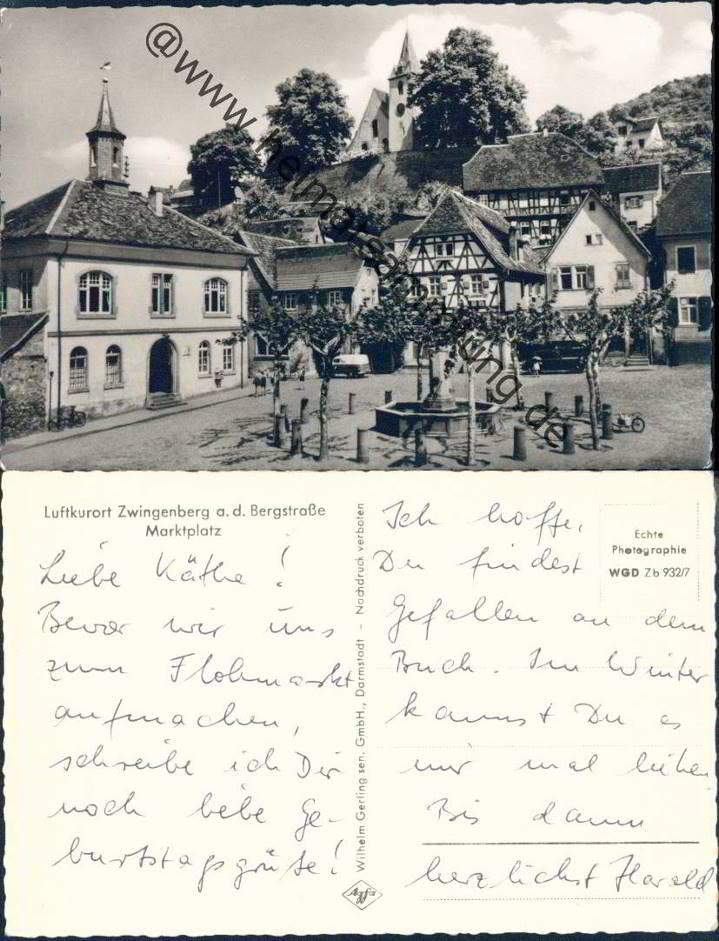 @www.heimatsammlung.de
Luftkurort Zwingenberg a. d. Bergstraße
Marktplatz
Liebe Käthe!
Bevor wir uns
zum Flohmarkt
aufmachen,
schreibe ich Dir
noch liebe Ge-
burtstagsgrüße!
Wilhelm Gerling sen. GmbH., Darmstadt - Nachdruck verboten
Agfa
Echte
Photographie
WGD Zb 932/7
Ich hoffe,
Du findest
Gefallen an dem
Buch. Im Winter
kannst Du es
mir mal leihen
Bis dann
herzlichst Harald